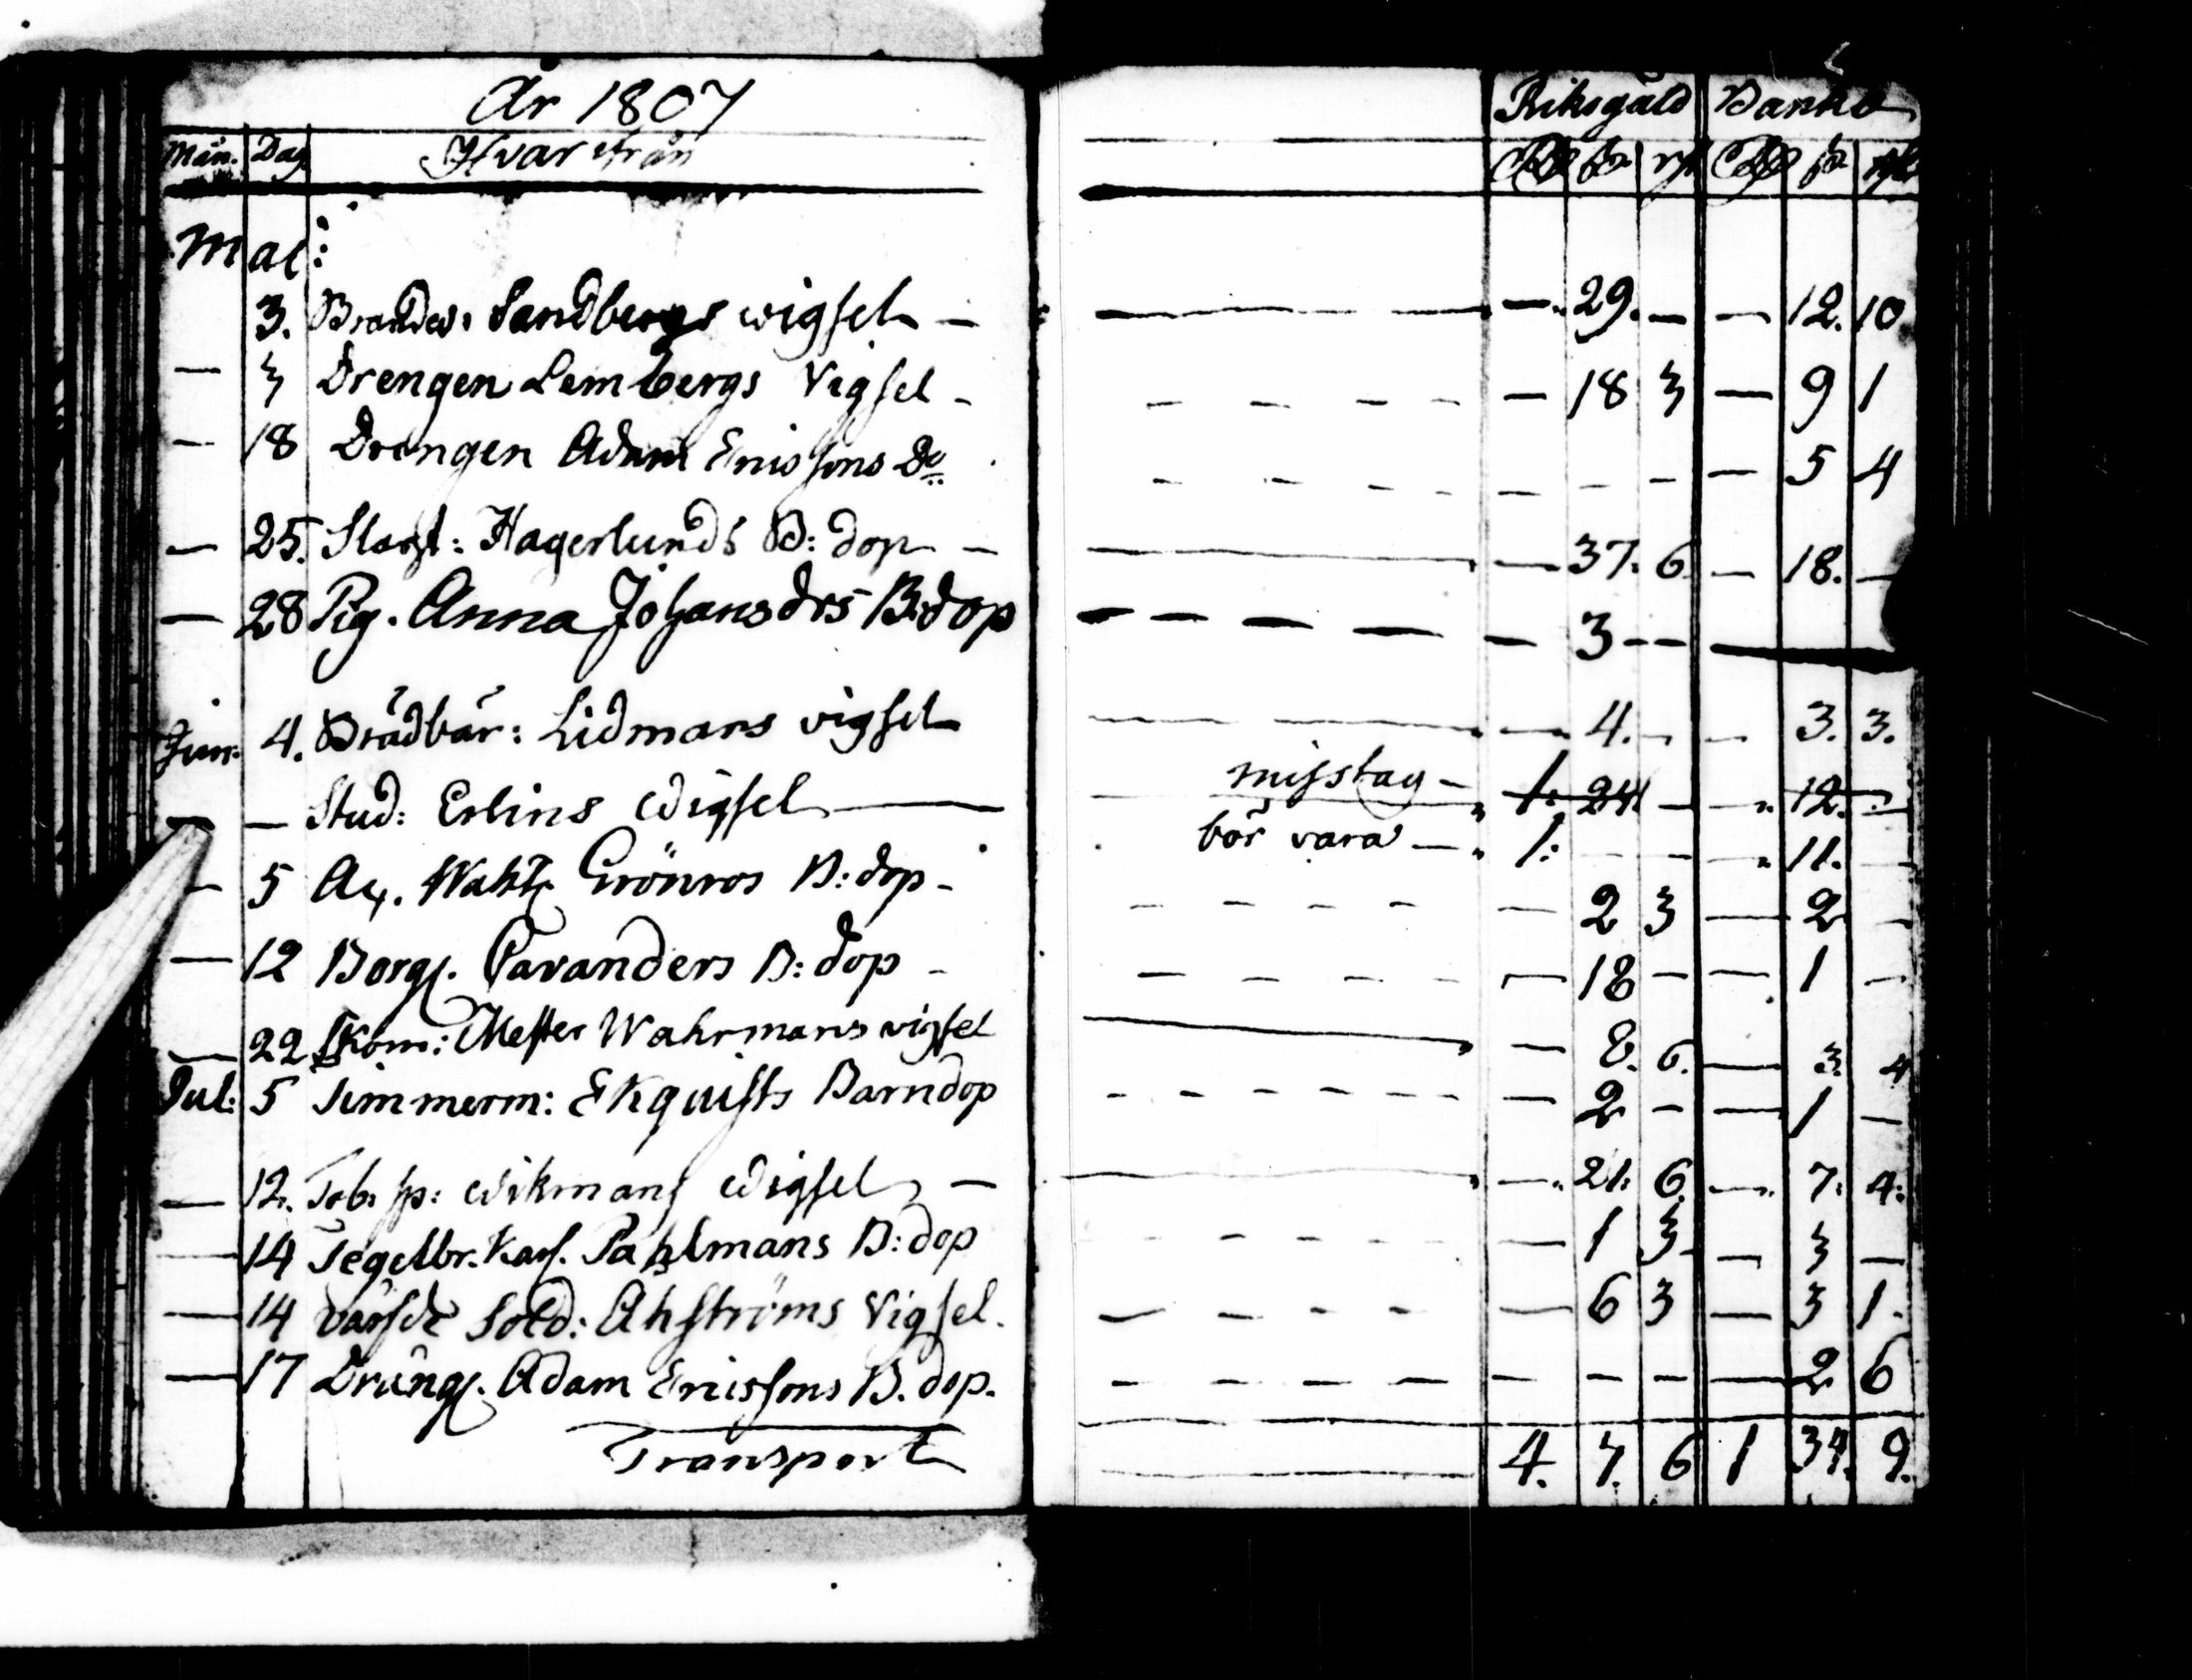 År 1807
Riksgäld Banko
Mån. Dag Hvarifrån
Maj:
3. Sandbergs wigsel — — 29. — — 12. 10
— 3 Drengen Lembergs Vigsel - — 18 3 — 9 1
— 18 Drengen Adam Ericssons Do — — — — 5 4
— 25. Hagerlunds B: dop — — 37. 6 — 18. —
— 28 Pig. Anna Johansdrs B: dop — 3 — —
Jun: 4. Brädbär: Lidmans vigsel — 4. — — 3. 3.
— — Stud: Erlins wigsel — misstag — 1: 24 — — 12. —
bör vara — 1: — — — 11. —
— 5 Grönros B: dop - — 2 3 — 2 —
— 12 Borg. Pavanders B: dop - — 18 — — 1 —
— 22 Skom: Mester Wahrmans vigsel — 8. 6. — 3. 4
Jul: 5 Timmerm: Ekquists Barndop — 2 — — 1 —
— 12. Tob: sp: Wikmans Wigsel, — — 21: 6. — 7: 4:
— 14 Tegelbr. Karl. Pahlmans B: dop — 1 3 — 3 —
— 14 Sold: Ahströms Vigsel. — 6 3 — 3 1.
— 17 Dräng. Adam Ericssons B. dop. — — — — 2 6
Transport 4. 7. 6 1 34. 9.